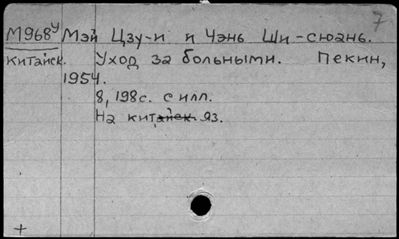 7
М968у Мэй Цзу-и и Чэнь Ши-сюань.
китайск. Уход за больными. Пекин,
1954.
8, 198с. с илл.
На китайск яз.
+